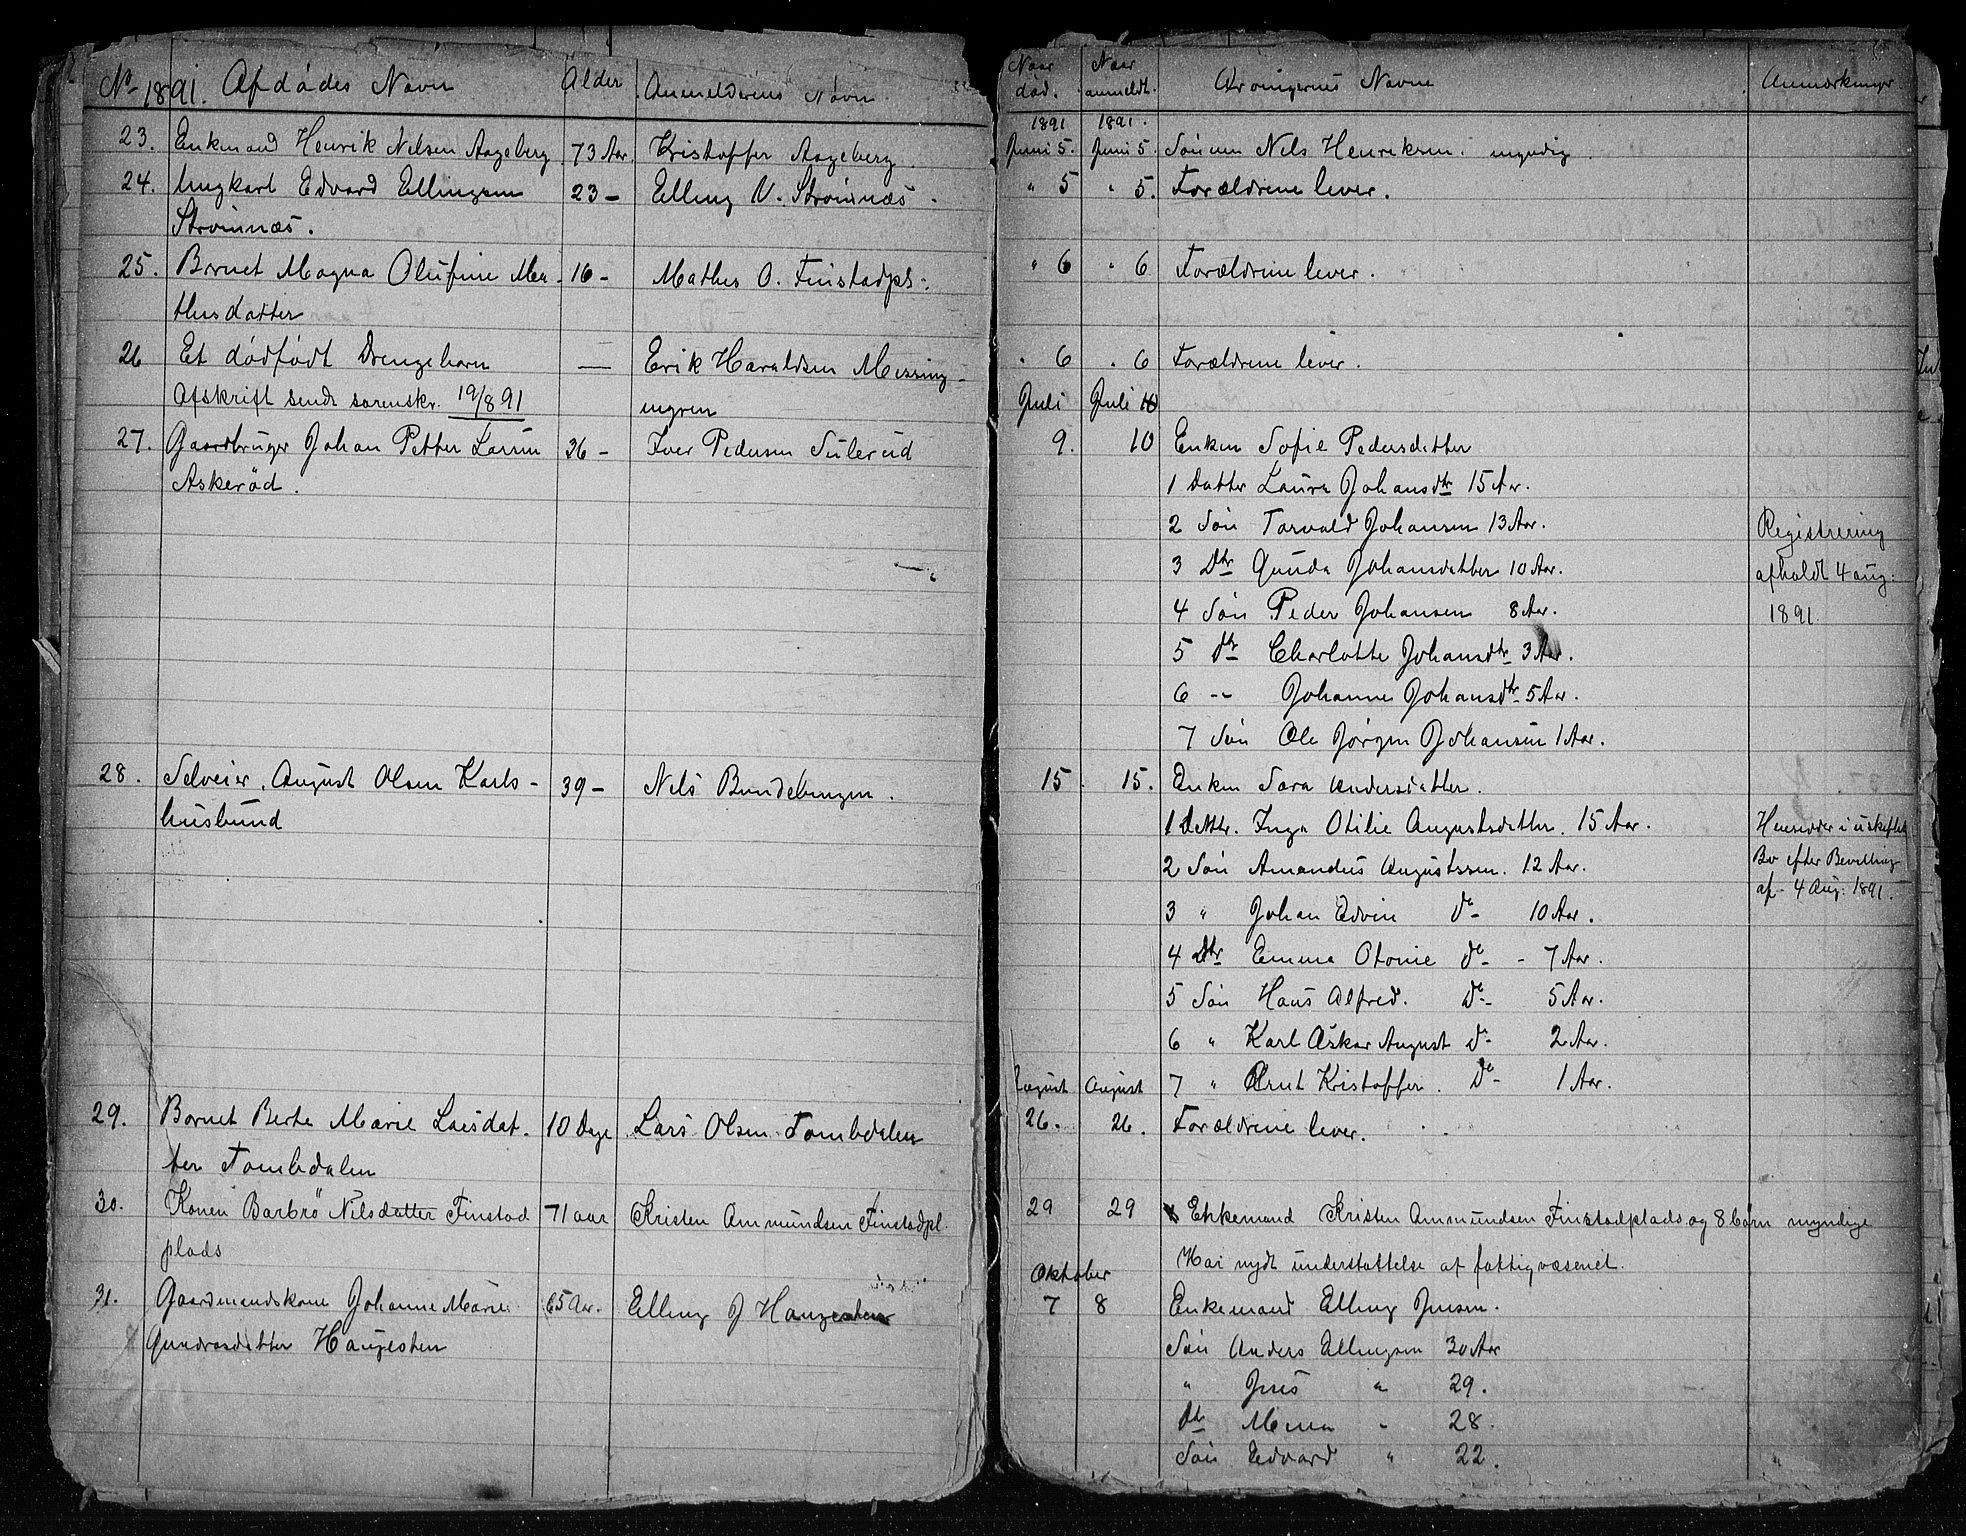 No 1891. Afdødes Navn Alder Anmelderens Navn
23. Enkmand Henrik Nilsen Aageberg 73 Aar. Kristoffer Aageberg.
24. Ungkarl Edvard Ellingsen 23 - Elling N. Strømnæs.
Strømnæs.
25. Barnet Magna Olufine Ma- 16 - Mathes O. Finstadpl-.
thusdatter
26 Et dødfødt Drengebarn — Erik Haraldsen Messing-
Afskrift sendt sorenskr. 19/8 91 engren
27. Gaardbruger Johan Petter Larsen 36 - Iver Pedersen Sulerud
Askerød.
28. Selveier, August Olsen Karls- 39 - Nils Bundebungen.
husbund
29. Barnet Berte Marie Larsdat. 10 Dage Lars Olsen Tombdalen
ter Tombdalen
30. Konen Barbrö Nilsdatter Finstad 71 aar Kristen Ammundsen Finstadpl.
plads
31. Gaardmandskone Johanne Marie 65 Aar. Elling J Haugesten
Gundrosdatter Haugesten
Naar død. Naar anmeldt. Arvingernes Navne Anmærkninger
1891 1891.
Juni 5. Juni 5. Sønnen Nils Henriksen. myndig.
" 5 " 5. Forældrene lever.
" 6 " 6 Forældrene lever.
" 6 " 6 Forældrene lever.
Juli Juli 10
9. 10 Enken Sofie Pedersdatter
1 Datter Laura Johansdtr 15 Aar.
2 Søn Torvald Johansen 13 Aar. Registrering
3 Dtr Gunda Johansdatter 10 Aar. afholdt 4 aug:
4 Søn Peder Johansen 8 Aar. 1891.
5 Dtr Charlotte Johansdtr 3 Aar.
6 -- Johanne Johansdtr 5 Aar.
7 Søn Ole Jørgen Johansen 1 Aar.
15 15. Enken Sara Andersdatter.
1 Datter. Inga Otilie Augustsdatter. 15 Aar. Hensidder i uskiftet
2 Søn Amandus Augustssen. 12 Aar. Bo efter Bevilling
3 " Johan Edvin Do 10 Aar. af 4 Aug: 1891.
4 Dtr Emma Otonie do - 7 Aar.
5 Søn Hans Alfred. Do 5 Aar.
6 " Karl Oskar August do 2 Aar.
August August 7 " Arnt Kristoffer. Do 1 Aar.
26. 26. Forældrene lever.
29 29 x Enkemand Kristen Ammundsen Finstadplads og 8 børn myndige
Har nydt understøttelse af fattigvæsenet.
Oktober
7 8 Enkemand Elling Jensen.
Søn Anders Ellingsen 30 Aar
" Jens " 29.
Dtr Mena " 28.
Søn Edvard " 22.